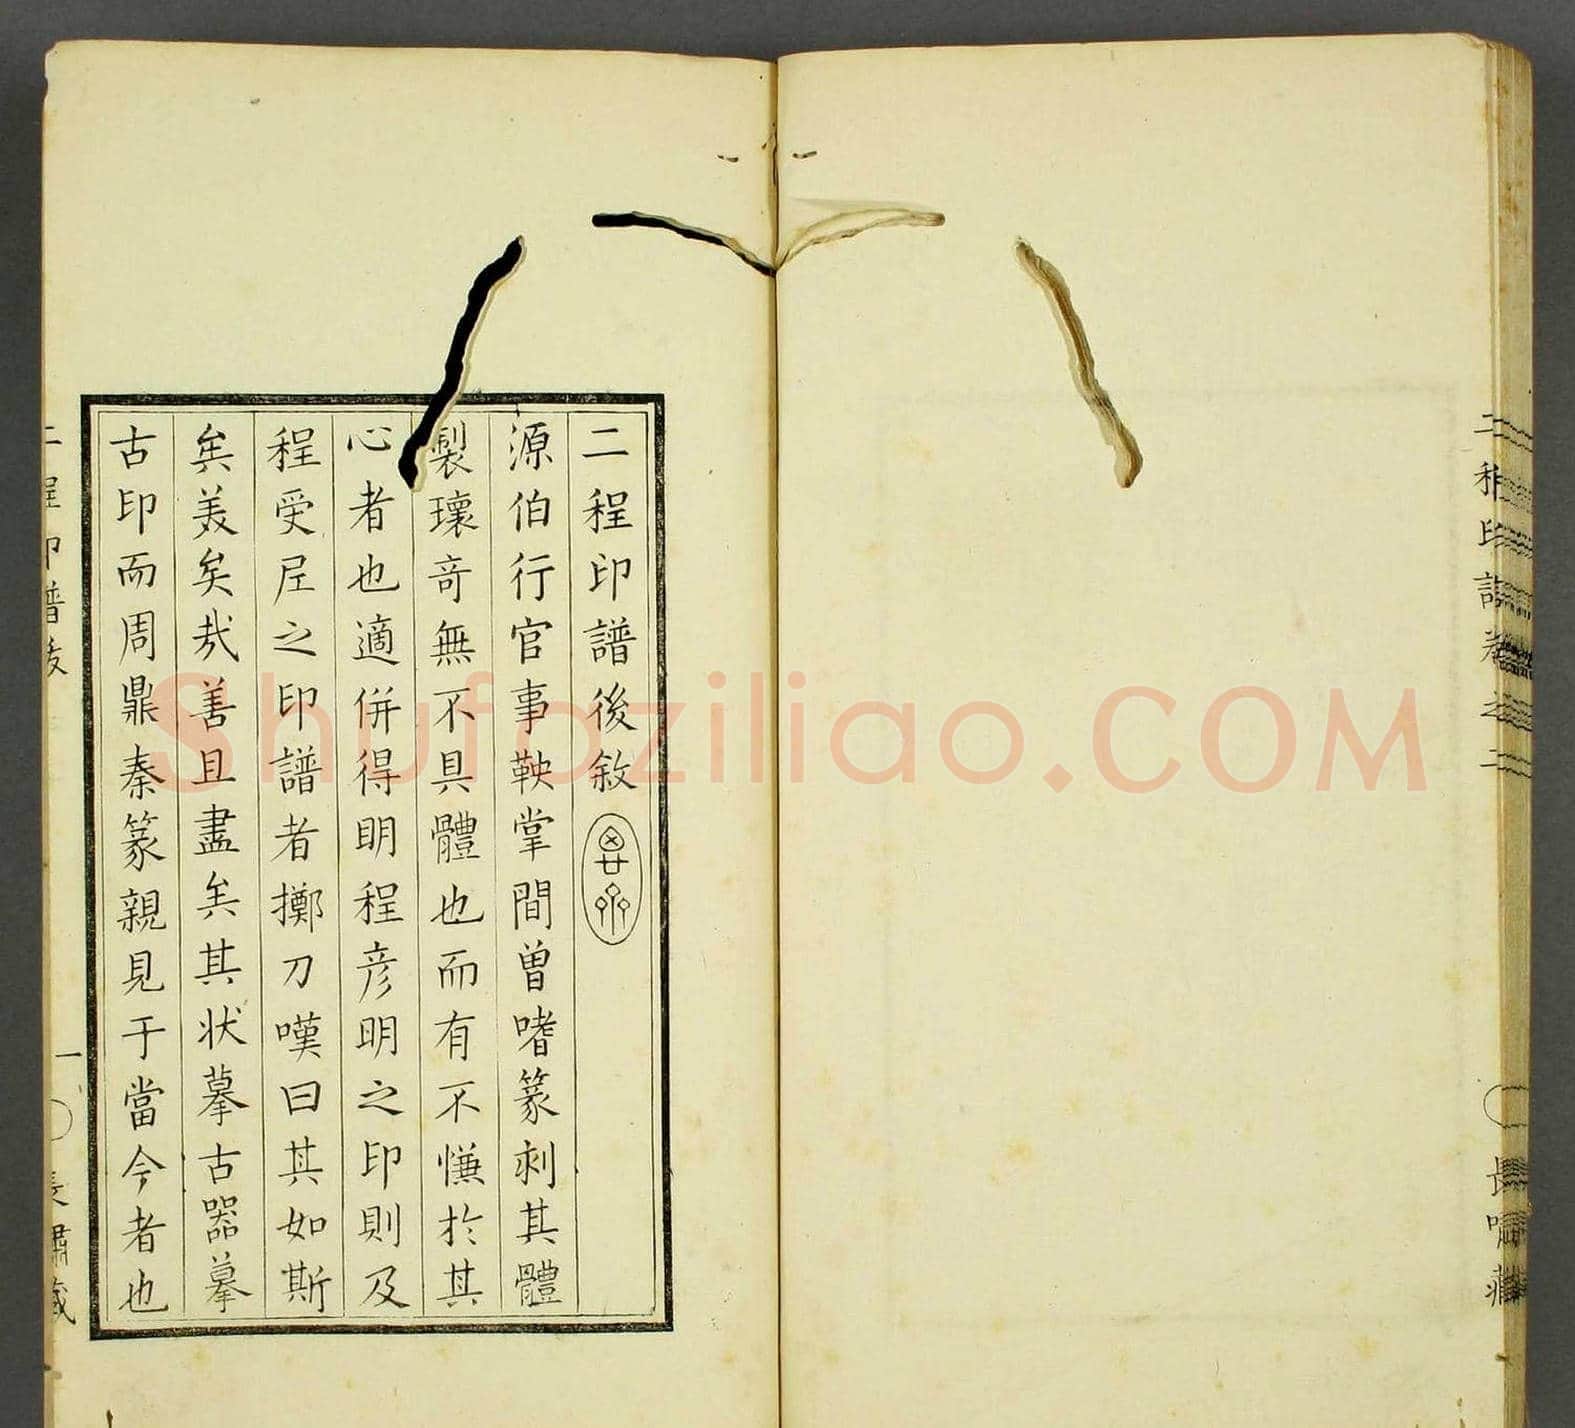 二程印譜後敘
源伯行官事鞅掌間曽嗜篆刻其體
製瓌奇無不具體也而有不慊於其
心者也適併得明程彦明之印則及
程受尼之印譜者擲刀嘆曰其如斯
矣美矣哉善且盡矣其状摹古器摹
古印而周鼎秦篆親見于當今者也
二程印譜後
一
長嘯藏
二程印譜卷之二
長嘯藏
Shufaziliao.COM